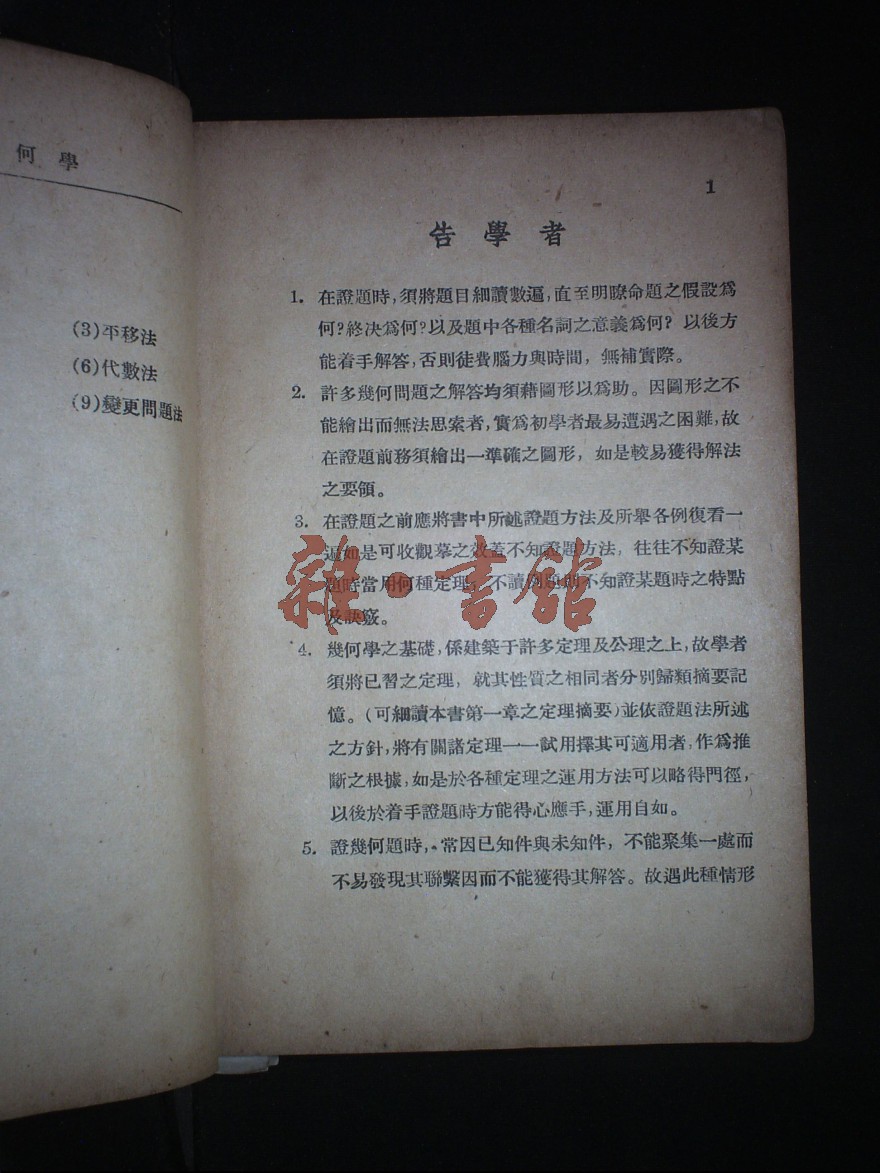 何學
(3)平移法
(6)代數法
(9)變更問題法
1
告學者
1. 在證題時,須將題目細讀數遍,直至明瞭命題之假設爲
何?終决爲何?以及題中各種名詞之意義爲何?以後方
能着手解答,否則徒費腦力與時間,無補實際。
2. 許多幾何問題之解答均須藉圖形以爲助。因圖形之不
能繪出而無法思索者,實爲初學者最易遭遇之困難,故
在證題前務須繪出一準確之圖形,如是較易獲得解法
之要領。
3. 在證題之前應將書中所述證題方法及所舉各例復看一
遍如是可收觀摹之效蓋不知證題方法,往往不知證某
題時當用何種定理,不讀例題則不知證某題時之特點
及訣竅。
4. 幾何學之基礎,係建築于許多定理及公理之上,故學者
須將已習之定理,就其性質之相同者分別歸類摘要記
憶。(可細讀本書第一章之定理摘要)並依證題法所述
之方針,將有關諸定理一一試用擇其可適用者,作爲推
斷之根據,如是於各種定理之運用方法可以略得門徑,
以後於着手證題時方能得心應手,運用自如。
5. 證幾何題時,常因已知件與未知件,不能聚集一處而
不易發現其聯繫因而不能獲得其解答。故遇此種情形
雜·書館